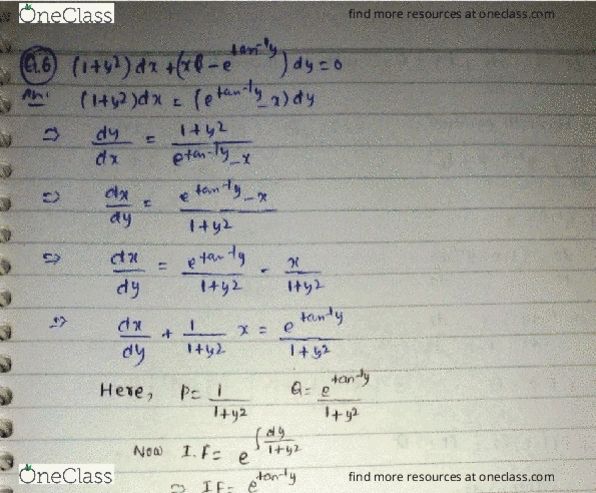 OneClass find more resources at oneclass.com
Q.6 (1+y²)dx + (x - e^tan⁻¹y) dy = 0
Ans: (1+y²)dx = (e^tan⁻¹y - x)dy
⇒ dy/dx = 1+y² / e^tan⁻¹y - x
⇒ dx/dy = e^tan⁻¹y - x / 1+y²
⇒ dx/dy = e^tan⁻¹y / 1+y² - x / 1+y²
⇒ dx/dy + 1/1+y² x = e^tan⁻¹y / 1+y²
Here, P = 1/1+y² Q = e^tan⁻¹y / 1+y²
Now I.F = e^∫dy/1+y²
⇒ IF = e^tan⁻¹y
OneClass find more resources at oneclass.com